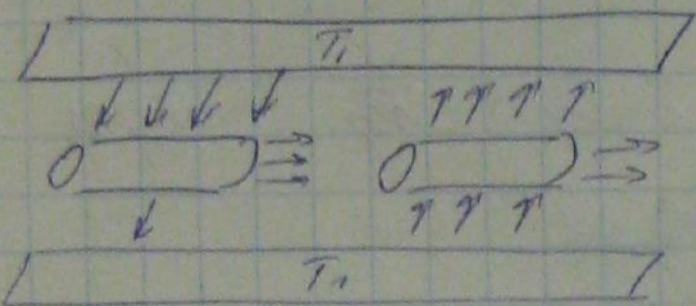 T₁
T₁